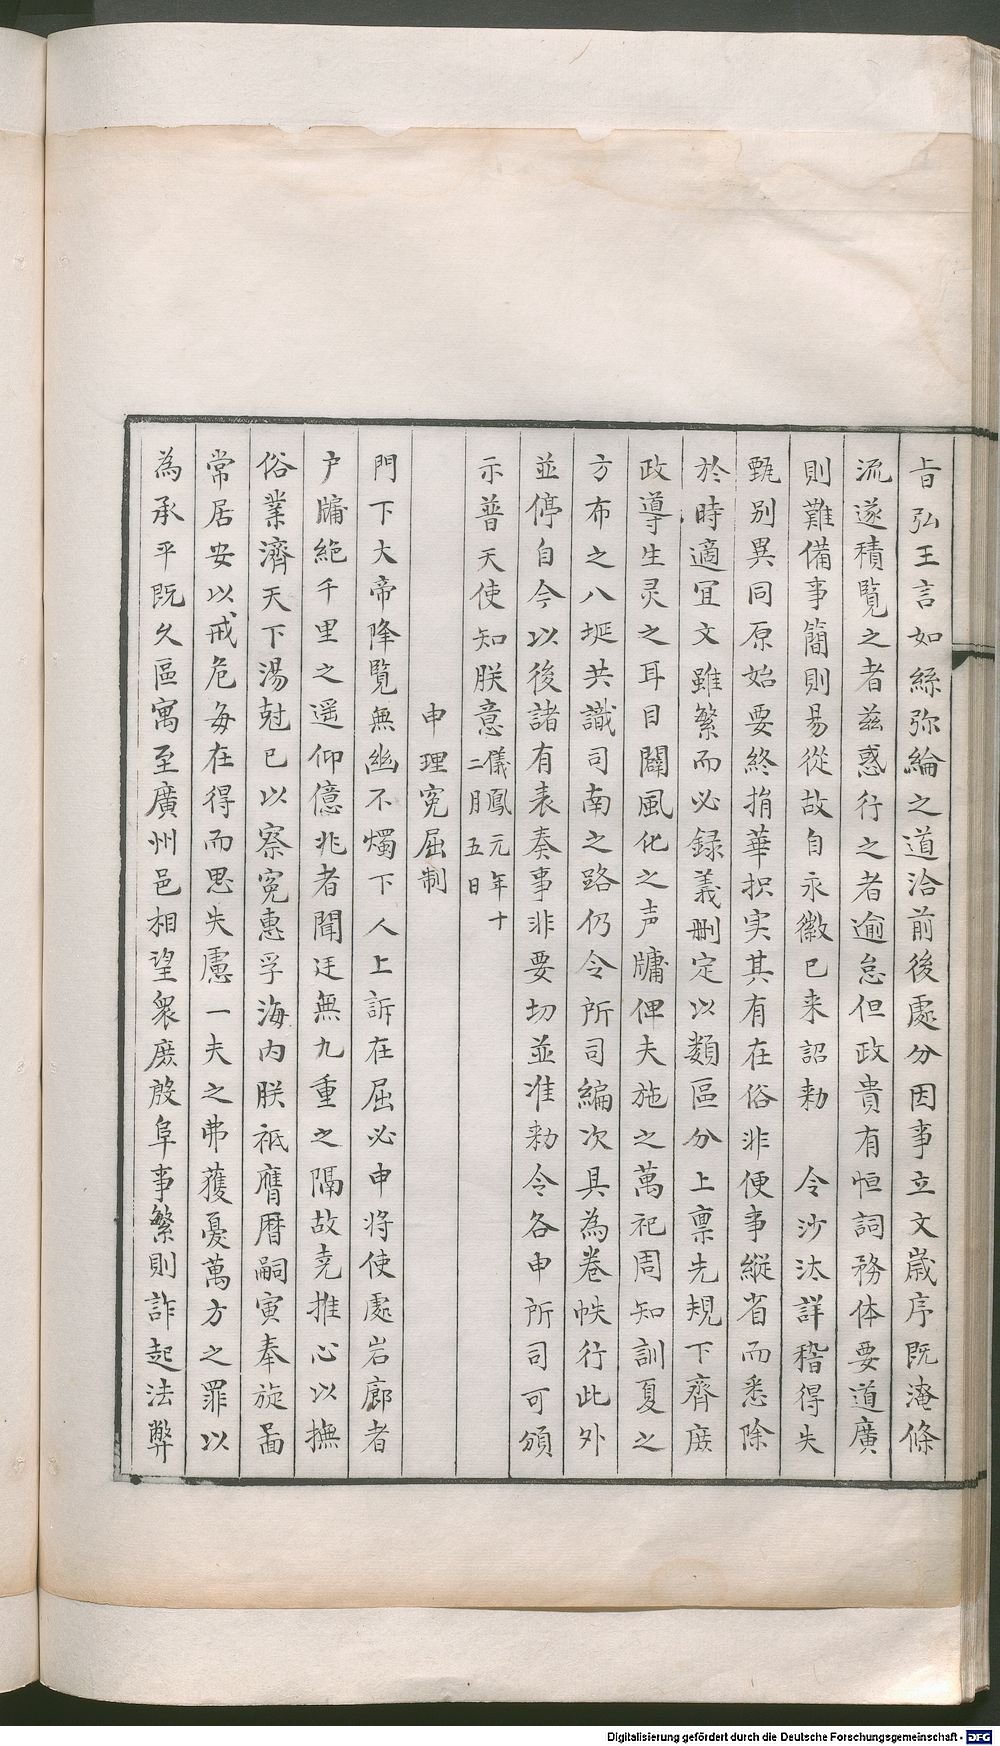 旨弘王言如絲弥綸之道洽前後處分因事立文歳序既淹條
流遂積覧之者茲惑行之者逾怠但政貴有恒詞務体要道廣
則難備事簡則易從故自永徽已来詔勑　令沙汰詳稽得失
甄别異同原始要終捐華抧实其有在俗非便事縱省而悉除
於時適宜文雖繁而必録義删定以類區分上禀先規下齊庶
政導生灵之耳目闢風化之声牗俾夫施之萬祀周知訓夏之
方布之八埏共識司南之路仍令所司編次具為卷帙行此外
並停自今以後諸有表奏事非要切並准勑令各申所司可頒
示普天使知朕意儀鳳元年十二月五日
申理寃屈制
門下大帝降覧無幽不燭下人上訴在屈必申将使處岩廊者
户牗絶千里之遥仰億兆者聞迋無九重之隔故尭推心以撫
俗業濟天下湯尅已以察寃惠孚海内朕祗膺暦嗣寅奉旋啚
常居安以戒危每在得而思失慮一夫之弗獲憂萬方之罪以
為承平既久區寓至廣州邑相望衆庶殷阜事繁則詐起法弊
Digitalisierung gefördert durch die Deutsche Forschungsgemeinschaft - DFG